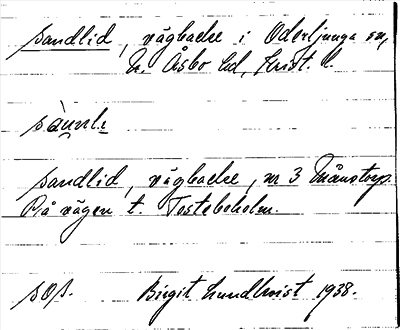 sandlid, vägbacke i Oderljunga sn,
N. Åsbo hd, Krist. l.
sandlid, vägbacke, nr 3 Månstorp.
På vägen t. Tosteboholm.
sos. Birgit Lundkvist 1938.